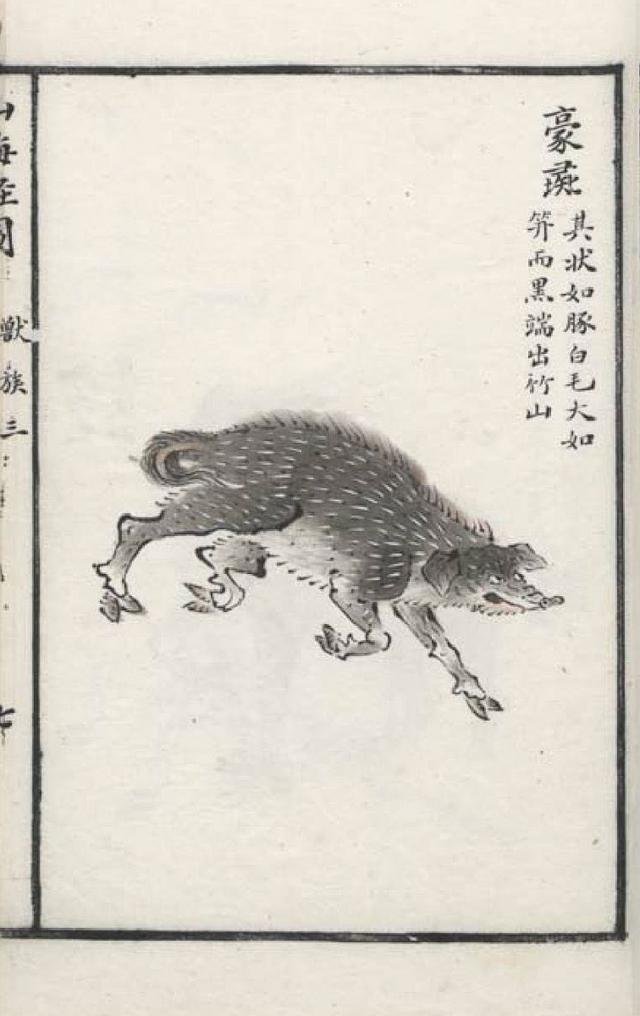 豪彘
其狀如豚白毛大如
笄而黑端出竹山
山海經圖
獸族三
七